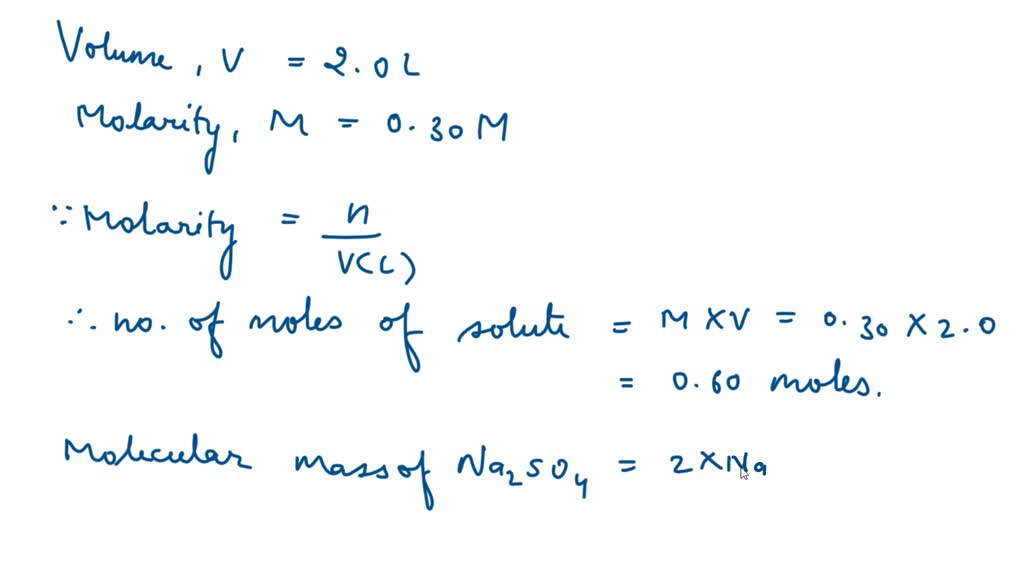 Volume, V = 2.0 L
Molarity, M = 0.30 M
∵ Molarity = n / V(L)
∴ no. of moles of solute = M X V = 0.30 X 2.0
= 0.60 moles.
Molecular mass of Na₂SO₄ = 2 X Na